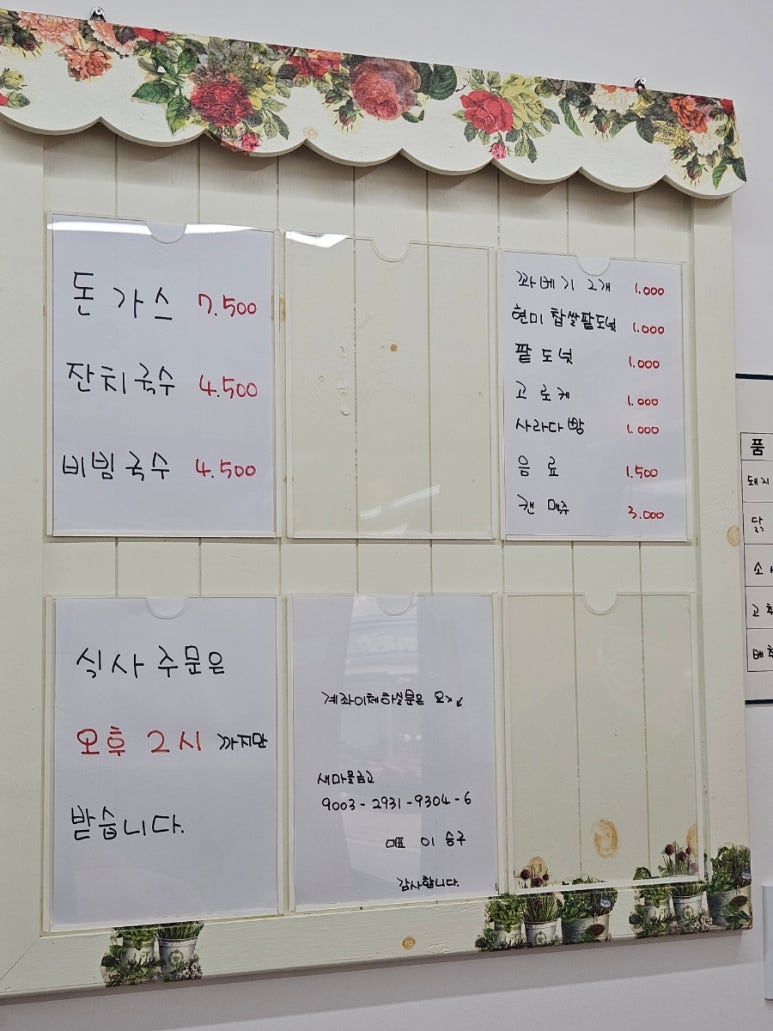 돈가스 7.500
잔치국수 4.500
비빔국수 4.500
꽈베기 2개 1.000
현미찹쌀팥도넛 1.000
팥도넛 1.000
고로케 1.000
사라다빵 1.000
음료 1.500
캔맥주 3.000
식사 주문은
오후 2시 까지만
받습니다.
계좌이체하실분은
새마을금고
9003-2931-9304-6
이승구
감사합니다.
품
돼지
닭
소
고추
배추